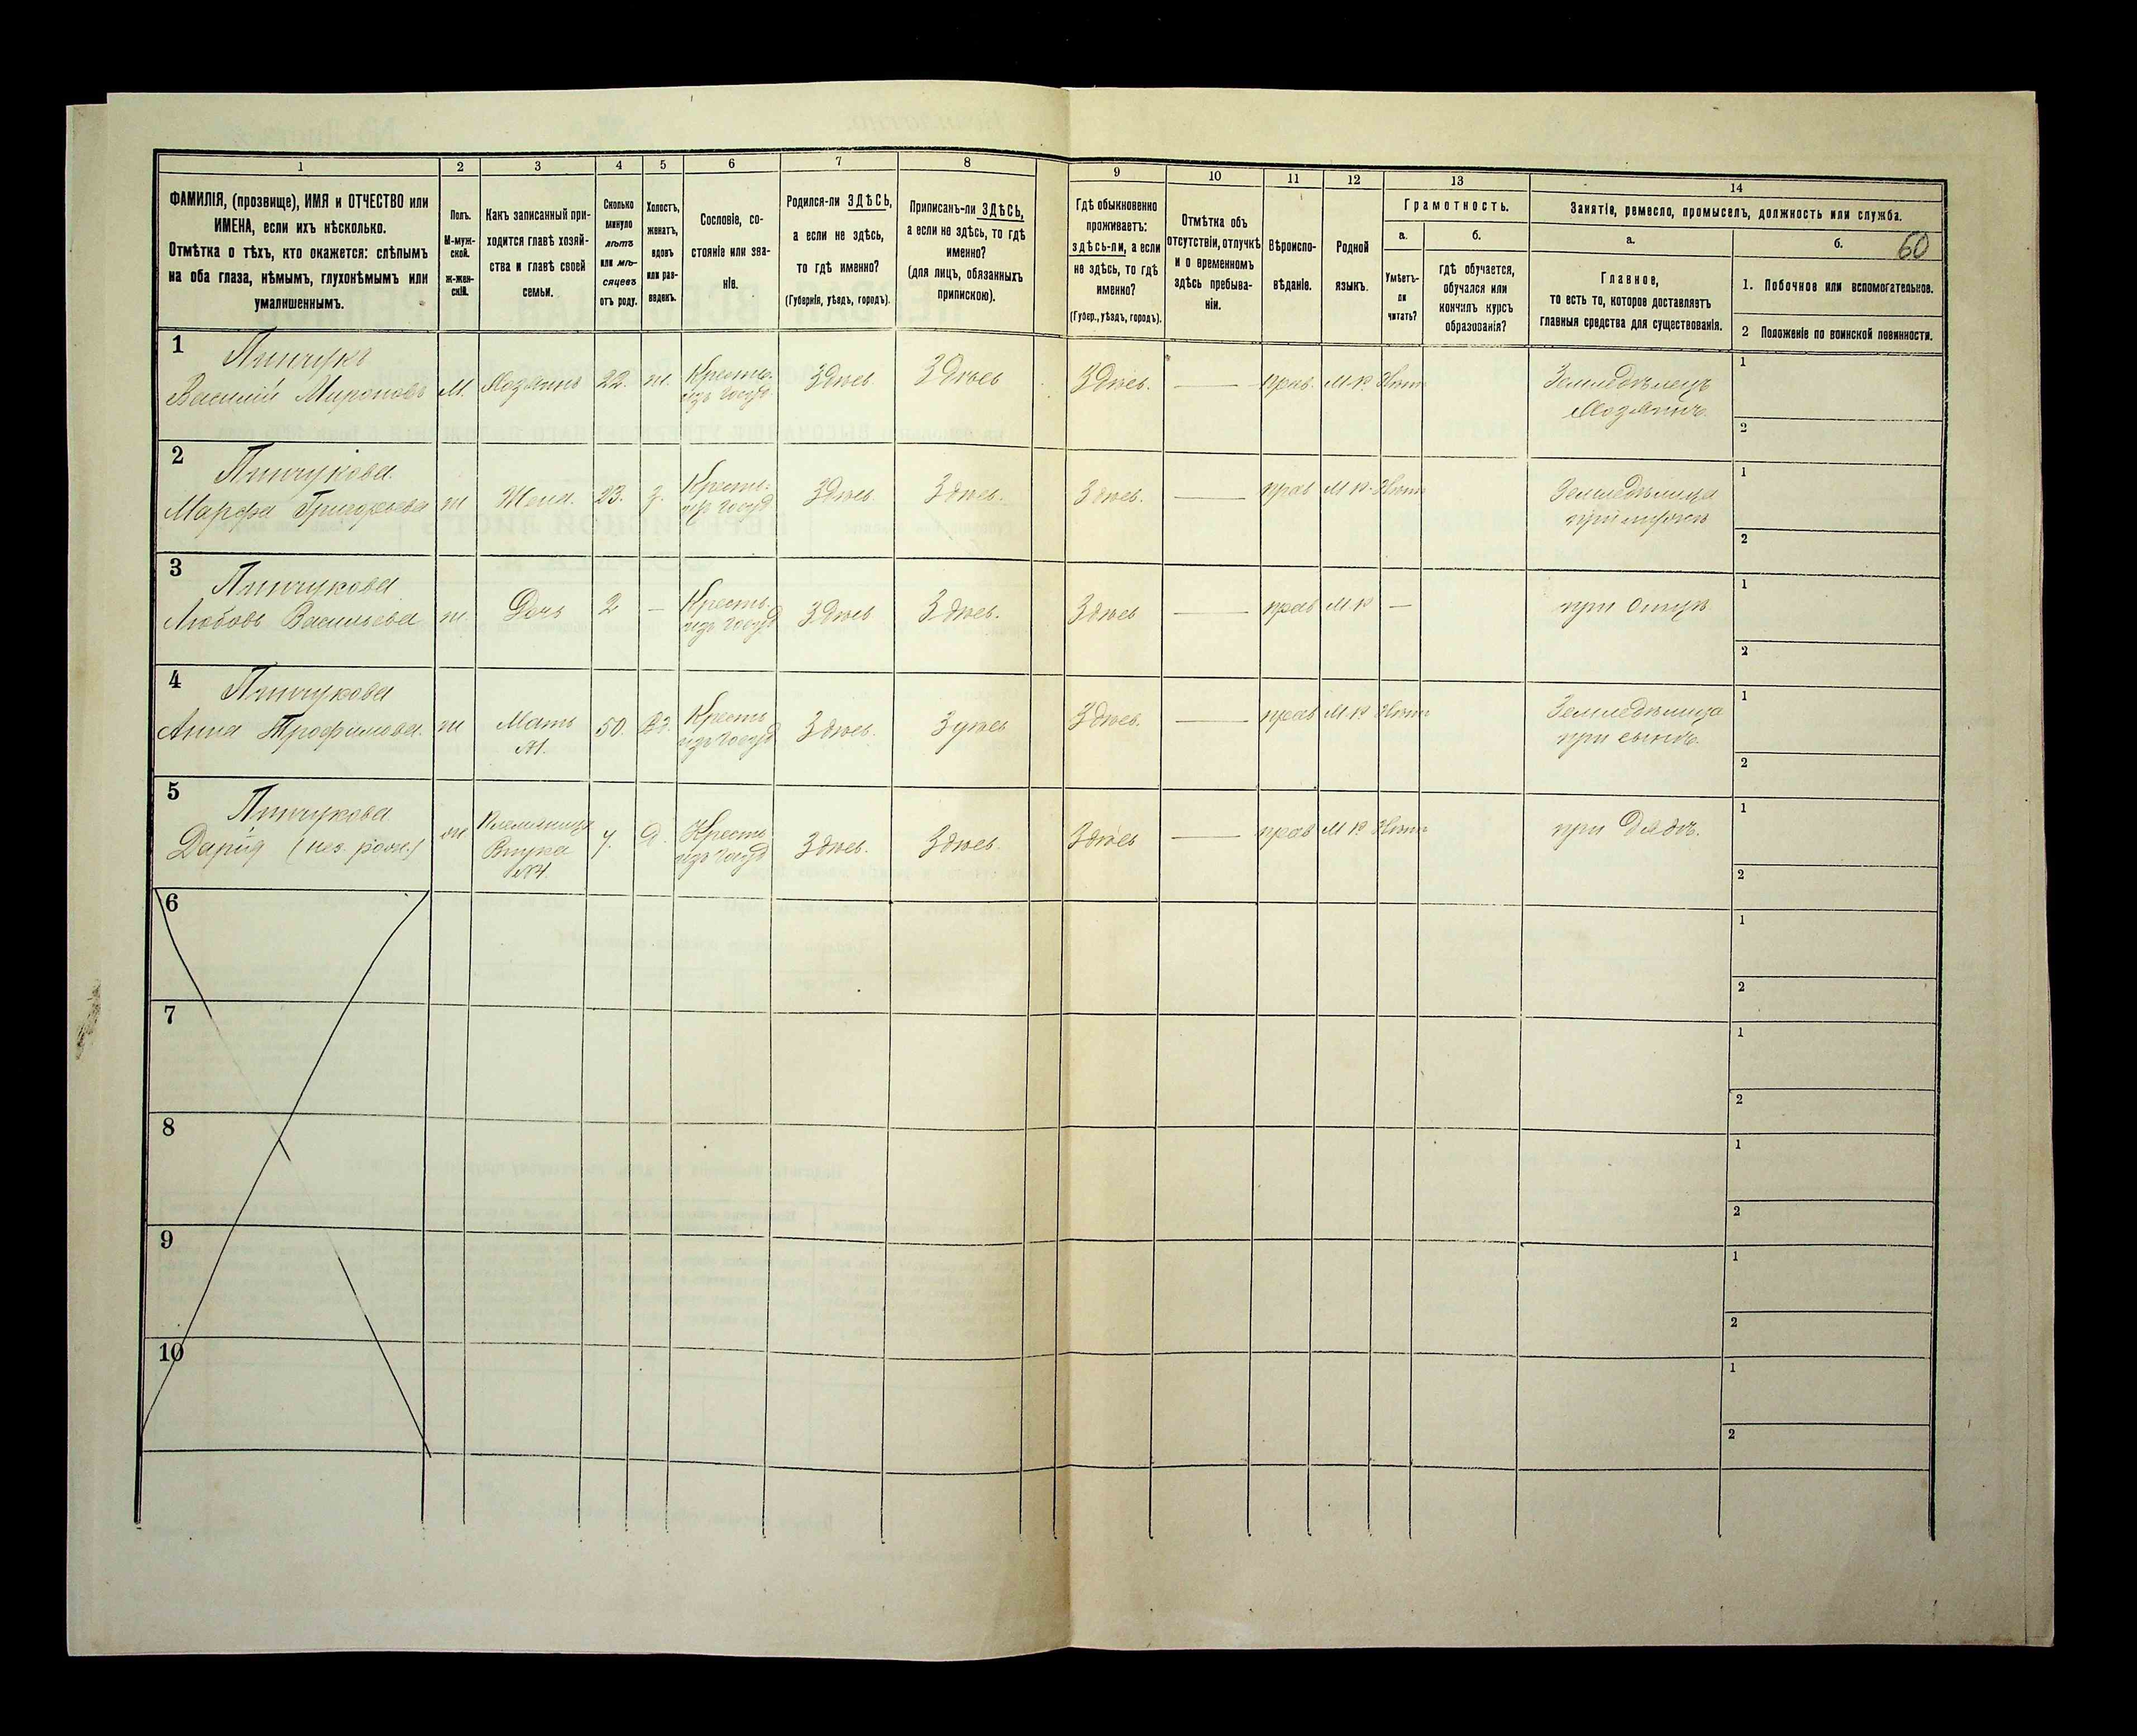 1 2 3 4 5 6 7 8 9 10 11 12 13 14
ФАМИЛІЯ, (прозвище), ИМЯ и ОТЧЕСТВО или
ИМЕНА, если ихъ нѣсколько.
Отмѣтка о тѣхъ, кто окажется: слѣпымъ
на оба глаза, нѣмымъ, глухонѣмымъ или
умалишеннымъ.
Полъ.
М-муж-
ской.
Ж-жен-
скій.
Какъ записанный при-
ходится главѣ хозяй-
ства и главѣ своей
семьи.
Сколько
минуло
лѣтъ
или мѣ-
сяцевъ
отъ роду.
Холостъ,
женатъ,
вдовъ
или раз-
веденъ.
Сословіе, со-
стояніе или зва-
ніе.
Родился-ли ЗДѢСЬ,
а если не здѣсь,
то гдѣ именно?
(Губернія, уѣздъ, городъ).
Приписанъ-ли ЗДѢСЬ,
а если не здѣсь, то гдѣ
именно?
(для лицъ, обязанныхъ
припискою).
Гдѣ обыкновенно
проживаетъ:
здѣсь-ли, а если
не здѣсь, то гдѣ
именно?
(Губер., уѣздъ, городъ).
Отмѣтка объ
отсутствіи, отлучкѣ
и о временномъ
здѣсь пребыва-
ніи.
Вѣроиспо-
вѣданіе.
Родной
языкъ.
Грамотность.
а.
Умѣетъ-
ли
читать?
б.
гдѣ обучается,
обучался или
кончилъ курсъ
образованія?
Занятіе, ремесло, промыселъ, должность или служба.
а.
Главное,
то есть то, которое доставляетъ
главныя средства для существованія.
б.
60
1. Побочное или вспомогательное.
2 Положеніе по воинской повинности.
1
Пинчукъ
Василій Мироновъ М. Хозяинъ 22. ж. Крестьь. изъ Госуд. Здѣсь Здѣсь Здѣсь. — прав. М.Р. Нѣтъ Земледѣлецъ
Хозяинъ.
1
2
2
Пинчукова.
Марфа Григорьева ж Жена. 23. З. Кресть. изъ Госуд Здѣсь. Здѣсь. Здѣсь. — прав М.Р. Нѣтъ Земледѣлица
при мужѣ
1
2
3
Пинчукова
Любовь Васильева ж. Дочь 2 — Кресть. изъ Госуд Здѣсь Здѣсь. Здѣсь — прав М.Р — при отцѣ
1
2
4
Пинчукова
Анна Трофимова. ж Мать 50. Вд. Кресть изъ Госуд Здѣсь. Здѣсь Здѣсь. — прав М.Р Нѣтъ Земледѣлица
№1. при сынѣ.
1
2
5
Пинчукова
Дарія (нез. рожд.) ж Племянница 7. Д. Кресть изъ Госуд Здѣсь. Здѣсь. Здѣсь — прав М.Р Нѣтъ при дядѣ.
Внука
№4.
1
2
6
1
2
7
1
2
8
1
2
9
1
2
10
1
2